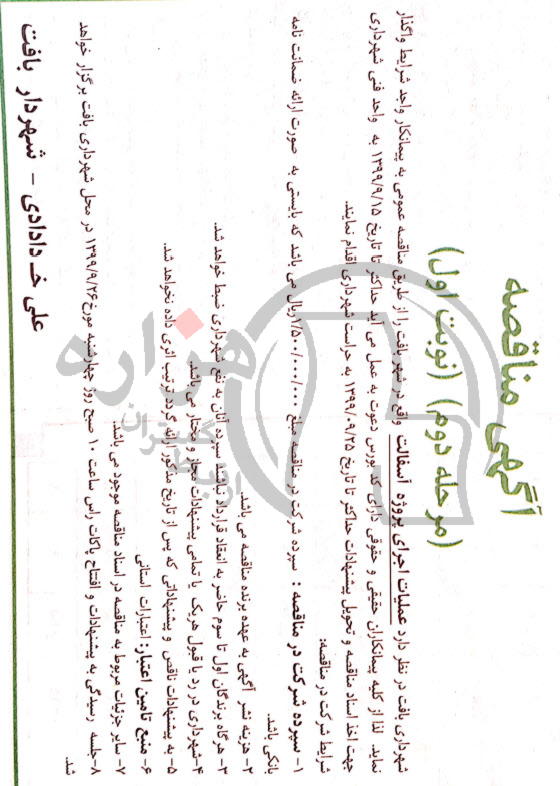 آگهی مناقصه
(مرحله دوم) (نوبت اول)
شهرداری بافت در نظر دارد عملیات اجرای پروژه آسفالت واقع در شهر بافت را از طریق مناقصه عمومی به پیمانکار واجد شرایط واگذار
نماید. لذا از کلیه پیمانکاران حقیقی و حقوقی دارای کد بورس دعوت به عمل می آید حداکثر تا تاریخ ۱۳۹۹/۹/۱۵ به واحد فنی شهرداری
جهت اخذ اسناد مناقصه و تحویل پیشنهادات حداکثر تا تاریخ ۱۳۹۹/۰۹/۲۵ به حراست شهرداری اقدام نمایند.
شرایط شرکت در مناقصه:
۱- سپرده شرکت در مناقصه : سپرده شرکت در مناقصه مبلغ ۱/۵۰۰/۰۰۰/۰۰۰ریال می باشد که بایستی به صورت ارائه ضمانت نامه
بانکی باشد.
۲- هزینه نشر آگهی به عهده برنده مناقصه می باشد.
۳- هرگاه برندگان اول تا سوم حاضر به انعقاد قرارداد نباشند سپرده آنان به نفع شهرداری ضبط خواهد شد.
۴-شهرداری در رد یا قبول هریک یا تمامی پیشنهادات مجاز و مختار می باشد.
۵- به پیشنهادات ناقص و پیشنهاداتی که پس از تاریخ مذکور ارائه گردد ترتیب اثری داده نخواهد شد.
۶- منبع تامین اعتبار: اعتبارات استانی
۷- سایر جزئیات مربوط به مناقصه در اسناد مناقصه موجود می باشد.
۸-جلسه رسیدگی به پیشنهادات و افتتاح پاکات راس ساعت ۱۰ صبح روز چهارشنبه مورخ۱۳۹۹/۹/۲۶ در محل شهرداری بافت برگزار خواهد
شد.
علی خـدادادی - شهردار بافت